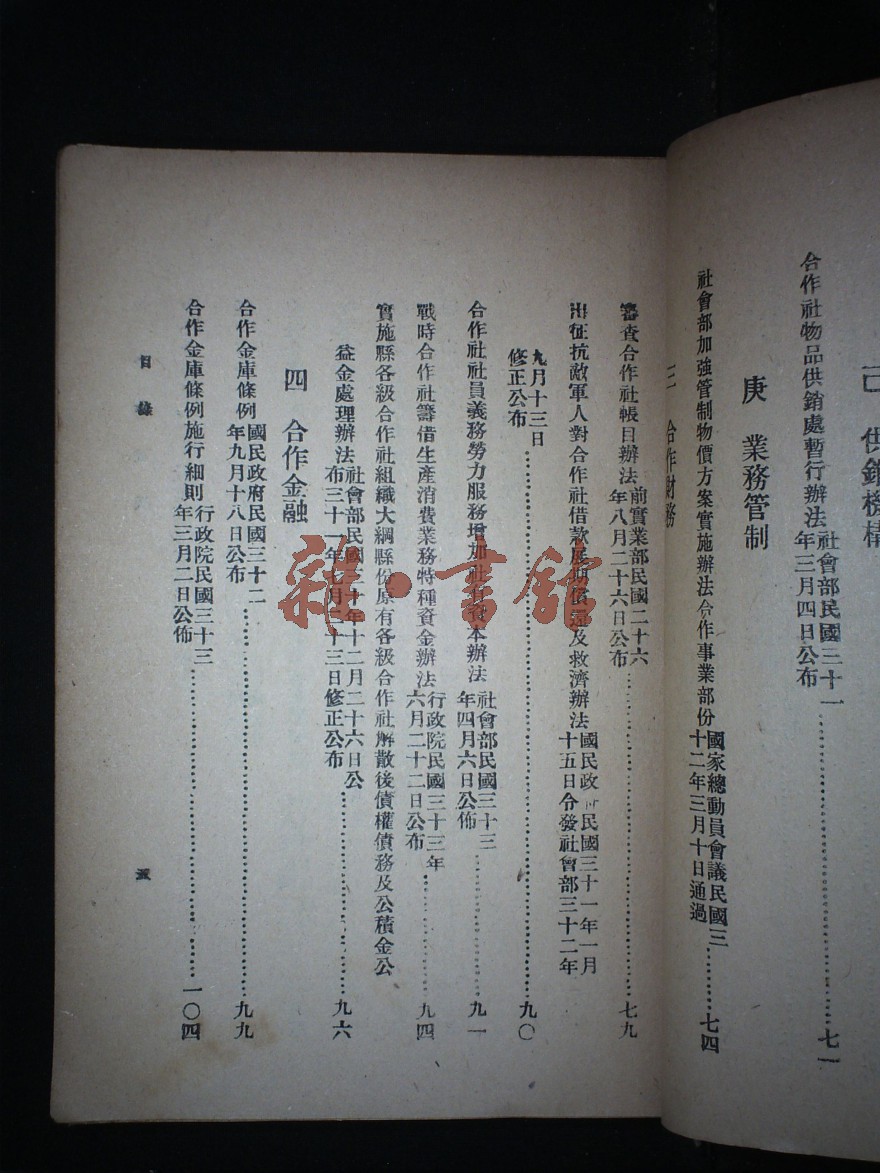 己 供銷機構
合作社物品供銷處暫行辦法 社會部民國三十一年三月四日公布…………七一
庚 業務管制
社會部加強管制物價方案實施辦法合作事業部份 國家總動員會議民國三十二年三月十日通過…………七四
三 合作財務
審查合作社帳目辦法 前實業部民國二十六年八月二十六日公布…………七九
出征抗敵軍人對合作社借款展期償還及救濟辦法 國民政府民國三十一年一月十五日令發社會部三十二年
九月十三日修正公布…………九〇
合作社社員義務勞力服務增加社有資本辦法 社會部民國三十三年四月六日公佈…………九一
戰時合作社籌借生產消費業務特種資金辦法 行政院民國三十三年六月二十二日公布…………九四
實施縣各級合作社組織大綱縣份原有各級合作社解散後債權債務及公積金公
益金處理辦法 社會部民國三十年十二月二十六日公布三十一年七月二十三日修正公布…………九六
四 合作金融
合作金庫條例 國民政府民國三十二年九月十八日公布…………九九
合作金庫條例施行細則 行政院民國三十三年三月二日公佈…………一〇四
目錄
五
雜·書館